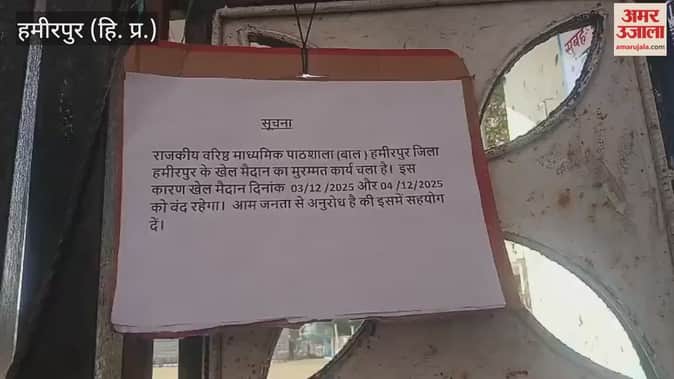 हमीरपुर (हि. प्र.)
अमर उजाला
amarujala.com
सूचना
राजकीय वरिष्ठ माध्यमिक पाठशाला (बाल ) हमीरपुर जिला
हमीरपुर के खेल मैदान का मुरम्मत कार्य चला है। इस
कारण खेल मैदान दिनांक 03/12 /2025 और 04 /12/2025
को बंद रहेगा। आम जनता से अनुरोध है की इसमें सहयोग
दें।